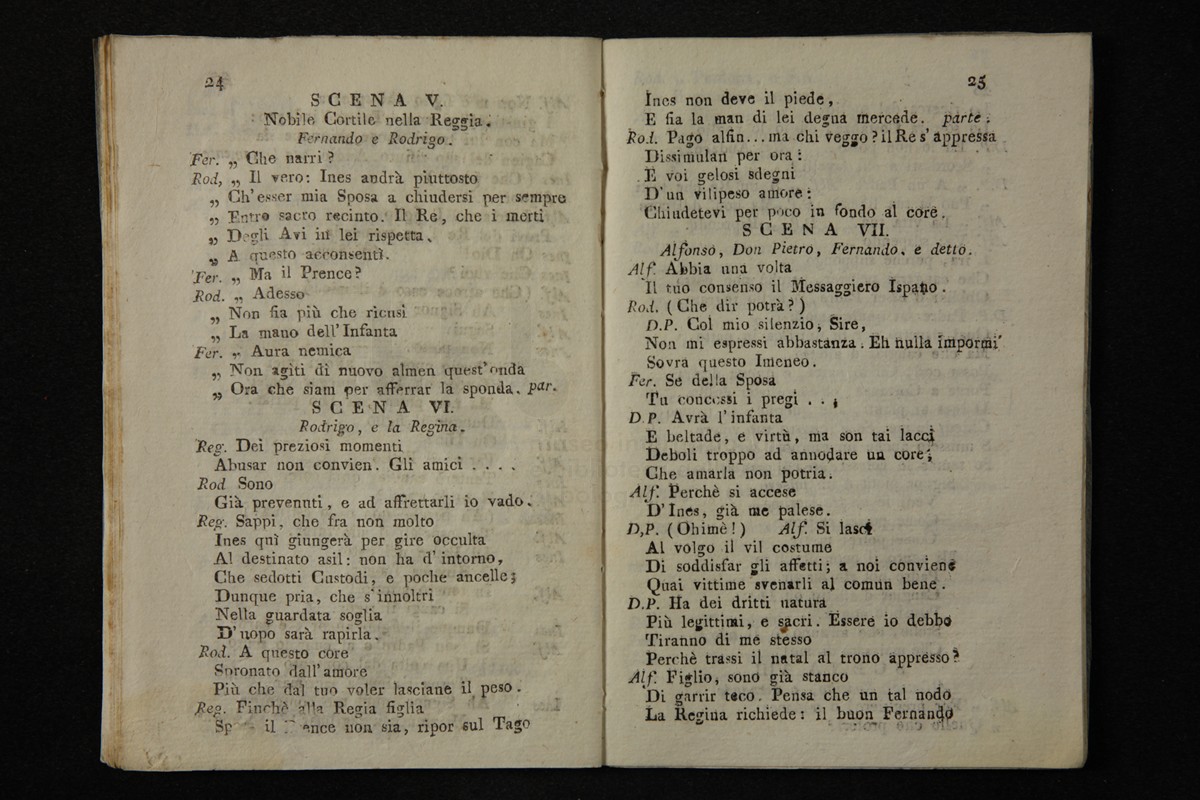 24
SCENA V.
Nobile Cortile nella Reggia.
Fernando e Rodrigo.
Fer. „ Che narri?
Rod, „ Il vero: Ines andrà piuttosto
„ Ch'esser mia Sposa a chiudersi per sempre
„ Entro sacro recinto. Il Re, che i merti
„ Degli Avi in lei rispetta,
„ A questo acconsentì.
Fer. „ Ma il Prence?
Rod. „ Adesso
„ Non fia più che ricusi
„ La mano dell'Infanta
Fer. „ Aura nemica
„ Non agiti di nuovo almen quest'onda
„ Ora che siam per afferrar la sponda. par.
SCENA VI.
Rodrigo, e la Regina.
Reg. Dei preziosi momenti
Abusar non convien. Gli amici . . . .
Rod Sono
Già prevenuti, e ad affrettarli io vado.
Reg. Sappi, che fra non molto
Ines quì giungerà per gire occulta
Al destinato asil: non ha d'intorno,
Che sedotti Custodi, e poche ancelle;
Dunque pria, che s'innoltri
Nella guardata soglia
D'uopo sarà rapirla.
Rod. A questo core
Spronato dall'amore
Più che dal tuo voler lasciane il peso.
Reg. Finchè alla Regia figlia
il non sia, ripor sul Tago
25
Ines non deve il piede,
E fia la man di lei degna mercede. parte.
Rod. Pago alfin... ma chi veggo? il Re s'appressa
Dissimulan per ora:
E voi gelosi sdegni
D'un vilipeso amore:
Chiudetevi per poco in fondo al core.
SCENA VII.
Alfonso, Don Pietro, Fernando, e detto.
Alf. Abbia una volta
Il tuo consenso il Messaggiero Ispano.
Rod. (Che dir potrà?)
D.P. Col mio silenzio, Sire,
Non mi espressi abbastanza. Eh nulla impormi
Sovra questo Imeneo.
Fer. Se della Sposa
Tu concessi i pregi . . .
D.P. Avrà l'infanta
E beltade, e virtù, ma son tai lacci
Deboli troppo ad annodare un core;
Che amarla non potria.
Alf. Perchè si accese
D'Ines, già me palese.
D,P. (Ohimè!) Alf. Si lasci
Al volgo il vil costume
Di soddisfar gli affetti; a noi conviene
Quai vittime svenarli al comun bene.
D.P. Ha dei dritti natura
Più legittimi, e sacri. Essere io debbo
Tiranno di me stesso
Perchè trassi il natal al trono appresso?
Alf. Figlio, sono già stanco
Di garrir teco. Pensa che un tal nodo
La Regina richiede: il buon Fernando